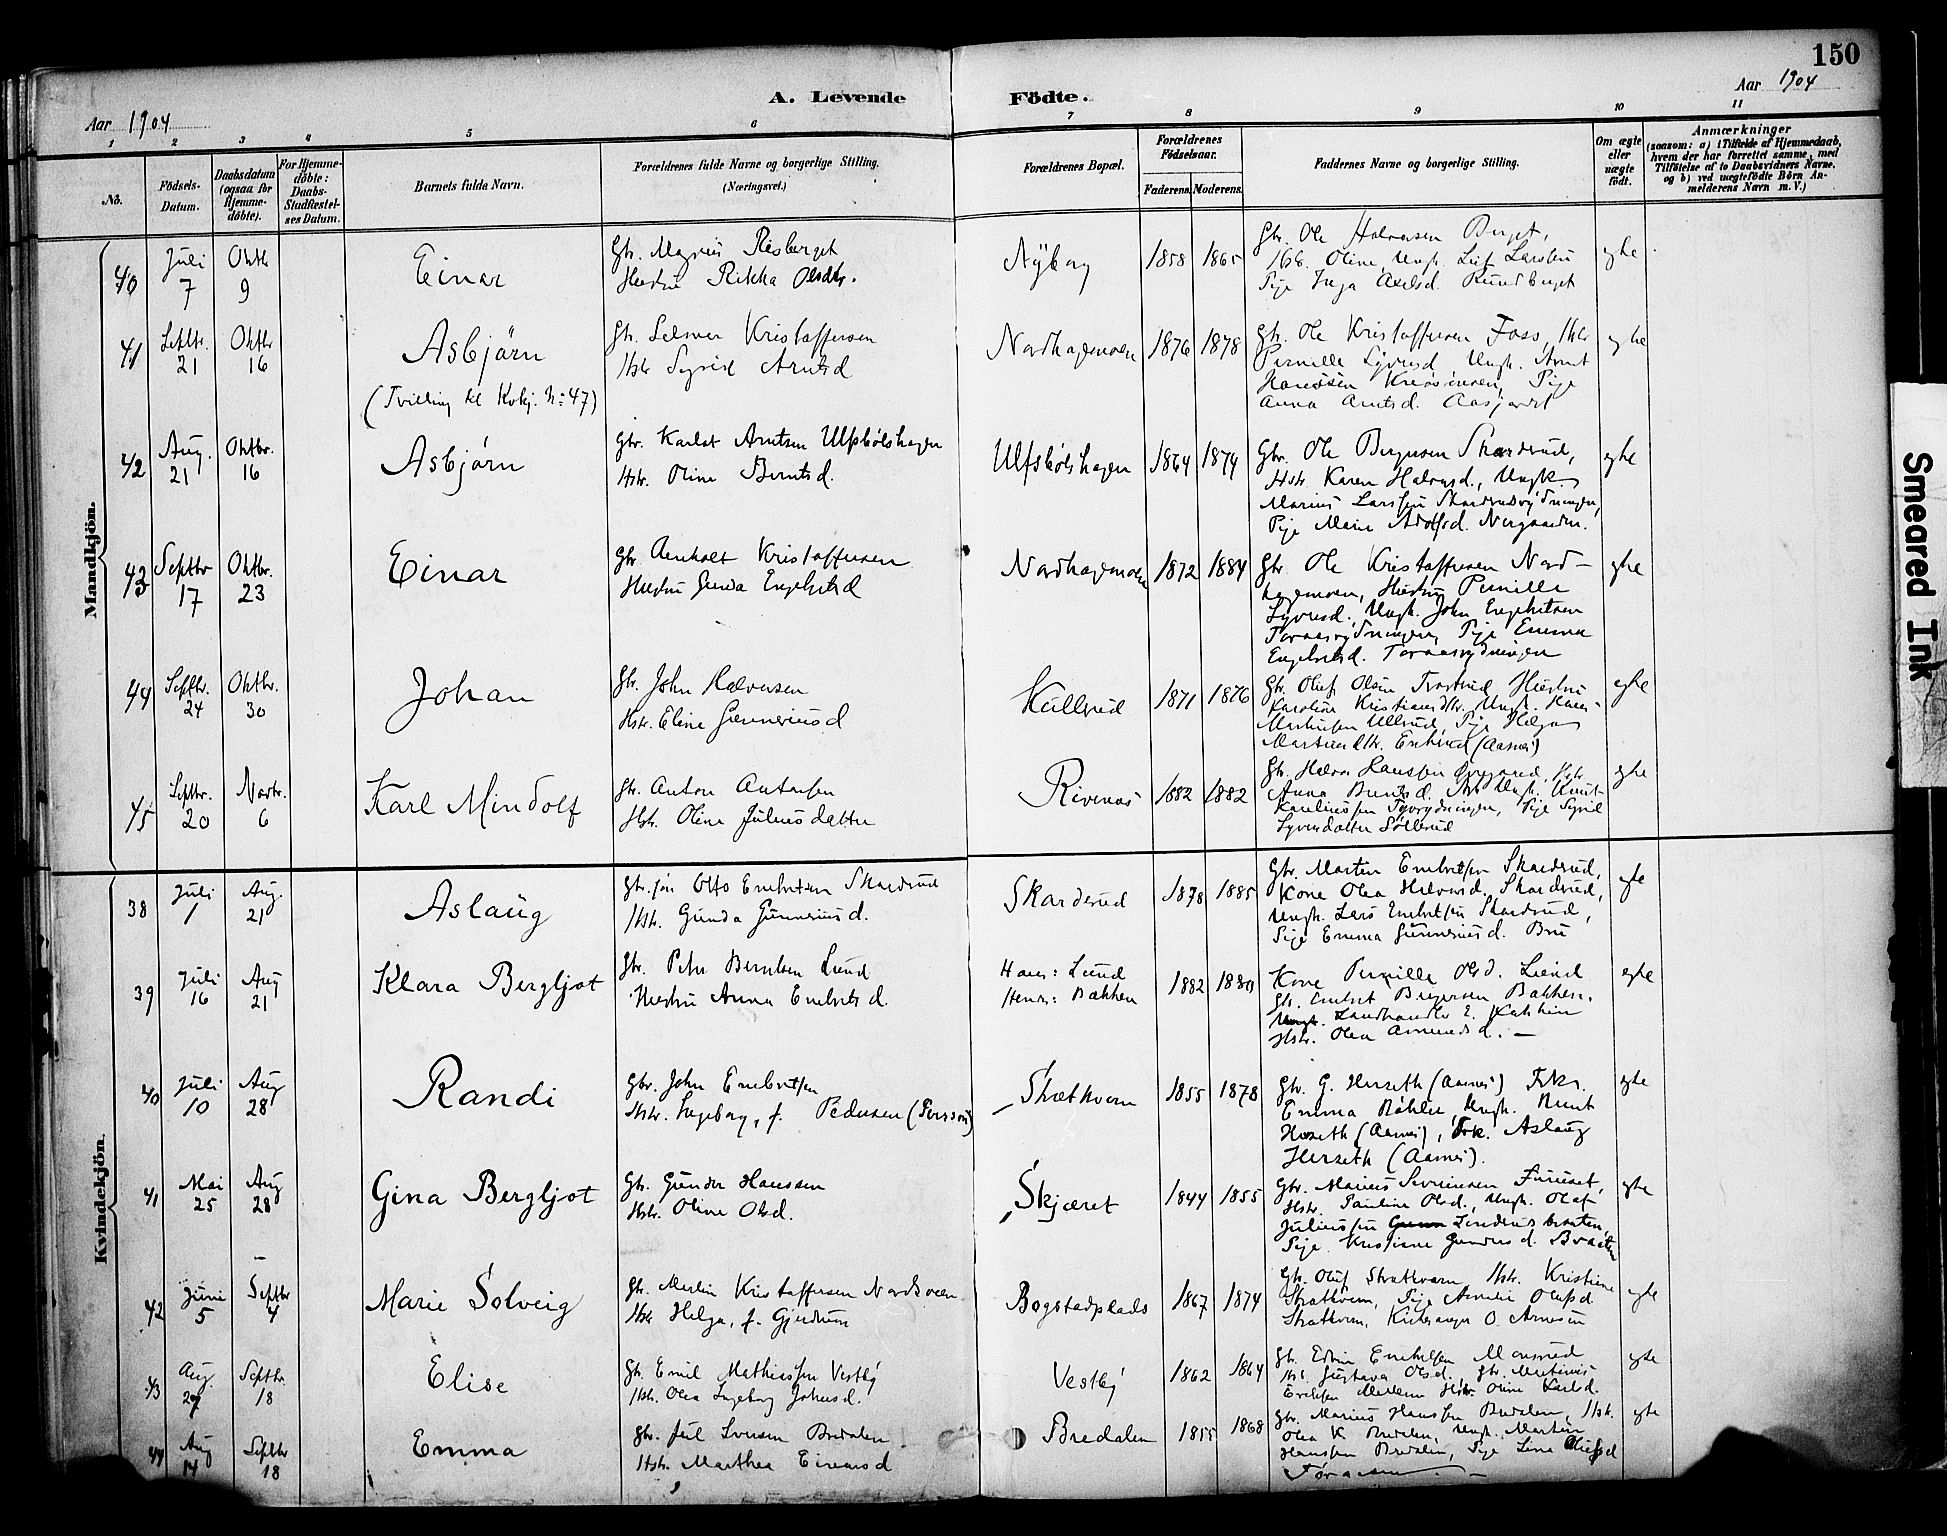 150
A. Levende Födte.
Aar 1904
Aar 1904
1 2 3 4 5 6 7 8 9 10 11
No.
Födsels-Datum.
Daabsdatum (ogsaa for Hjemme-döbte).
For Hjemme-döbte: Daabs-Stadfæstel-ses Datum.
Barnets fulde Navn.
Forældrenes fulde Navne og borgerlige Stilling. (Næringsvei.)
Forældrenes Bopæl.
Forældrenes Födselsaar.
Faderens. Moderens.
Faddernes Navne og borgerlige Stilling.
Om ægte eller uægte födt.
Anmærkninger
(saasom: a) i Tilfælde af Hjemmedaab, hvem der har forrettet samme, med Tilföielse af to Daabsvidners Navne, og b) ved uægtefödte Börn Anmelderens Navn m. V.)
Mandkjön.
40 Juli 7 Oktb 9 Einar
Gbr. Magnus Risberget
Hustru Rikka Olsdtr.
Nyborg 1858 1865
Gbr. Ole Halvorsen Berget,
Hstr. Oline, Ungk. Leif Larsen
Pige Inga Axelsd. Rundberget
egte
41 Septbr. 21 Oktbr 16 Asbjörn
(Tvilling til Kvkj. No: 47)
Gbr. Selmer Kristoffersen
Hstr Sigrid Arntsd
Nordhagemoen 1876 1878
Gbr. Ole Kristoffersen Foss, Hstr
Pernille Syversd Ungk. Arnt
Pige
Anna Arntsd.
egte
42 Aug. 21 Oktbr. 16 Asbjörn
Gbr. Karlot Arntsen Ulfsbölshagen
Hstr. Oline Berntsd.
Ulfsbölshagen 1864 1874
Gbr. Ole Bergersen Skarderud,
Hstr Karen Halvorsd., Ungk.
Marius Larssen
Pige Marie Adolfsd. Nergaarden.
egte
43 Septbr 17 Oktbr. 23 Einar
Gbr Amholt Kristoffersen
Hustru Gunda Engebretsd
Nordhagemoen 1872 1884
Gbr. Ole Kristoffersen Nord-
hagemoen, Hustru Pernille
Syversd. Ungk. John Engebretsen
Pige Emma
Engebretsd.
egte
44 Septbr. 24 Oktbr. 30 Johan
Gbr. John Halvorsen
Hstr. Eline Gunneriusd
Kullerud 1871 1876
Gbr. Oluf Olsen Hustru
Karoline Kristiansdtr. Ungk. Hans
Ullerud Pige Helga
(Aasnes)
egte
45 Septbr. 20 Novbr. 6 Karl Mindolf
Gbr. Anton Antonsen
Hstr. Oline Juliusdatter
Rivenes 1882 1882
Gbr. Halvor Hanssen
Anna Berntsd. Ungk. Knut
Pige Syril
Syversdatter Söllerud
egte
Kvindekjön.
38 Juli 1 Aug. 21 Aslaug
Gbr. sön Otto Embretsen Skarderud
Hstr. Gunda Gunneriusd.
Skarderud 1878 1885
Gbr. Marten Embretsen Skarderud,
Kone Olea Halvorsd. Skarderud,
Ungk. Lars Embretsen Skarderud,
Pige Emma Gunneriusd. Bru
egte
39 Juli 16 Aug 21 Klara Bergljot
Gbr. Peter Berntsen Lund
Hustru Anna Embretsd.
Hans: Lund
Hendes: Bakken
1882
Kone Pernille Olsd. Lund
Gbr. Embret Bergersen Bakken.
Landhandler E.
Hstr. Olea Amundsd. —
egte
40 Juli 10 Aug 28 Randi
Gbr. John Embretsen
Hstr. Ingeborg, f. Pedersen (Persson)
Skætkvern 1855 1878
Gbr. G. Herseth (Aasnes) Frk.
Emma Böhler, Ungk. Bernt
Herseth (Aasnes), Frk. Aslaug
Herseth (Aasnes).
egte
41 Mai 25 Aug 28 Gina Bergljot
Gbr. Gunder Hanssen
Hstr. Oline Olsd.
Skjæret 1844 1855
Gbr. Marius Severinsen Furuset,
Hstr. Pauline Olsd., Ungk. Olaf
Juliussen
Pige Kristiane Gundersd. Braaten
egte
42 Juni 5 Septbr 4 Marie Solveig
Gbr. Martin Kristoffersen
Hstr Helga, f. Gjerdrum
Bogstadplads 1867 1874
Gbr. Oluf Strætkvern Hstr. Kristiane
Strætkvern, Pige Amalie Olufsd
Strætkvern, Kirkesanger O. Arnesen
egte
43 Aug. 27 Septbr. 18 Elise
Gbr. Emil Mathiassen Vestby
Hstr. Olea Ingeborg Johansd.
Vestby 1862 1864
Gbr. Edvin Embretsen
Hstr. Gustava Olsd. Gbr. Martinus
Hstr. Oline Karlsd.
egte
44 Aug 14 Septbr 18 Emma
Gbr. Jul Iversen Bredalen
Hstr. Marthea Einarsd
Bredalen 1855 1868
Gbr. Marius Hanssen Bredalen, Hstr.
Olea K. Bredalen, Ungk. Martin
Hanssen Bredalen, Pige Lina
egte
Smeared Ink